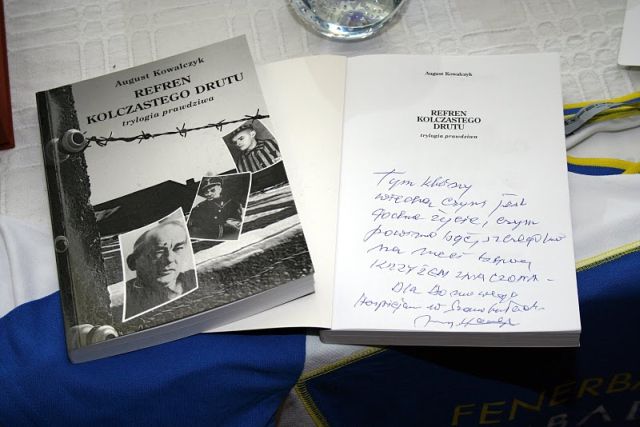 August Kowalczyk
REFREN
KOLCZASTEGO DRUTU
trylogia prawdziwa
August Kowalczyk
REFREN
KOLCZASTEGO
DRUTU
trylogia prawdziwa
Tym którzy
wiedzą czym jest
godne życie, czym
powinno być, szczególnie
na ziemi
KRZYŻEM ZNACZONA -
Dla Domowego
Hospicjum w
FENERBA